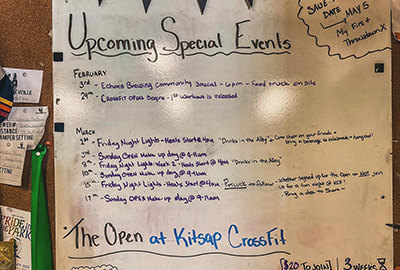 SAVE T
DATE MAY 5
My First
Throwdown
Upcoming Special Events
FEBRUARY
3rd - Echoes Brewing Community Social - 6pm - Food truck on site
29th - CrossFit Open Begins - 1st Workout is released
MARCH
1st - Friday Night Lights - Heats Start@4pm "Drinks in the Alley", Come cheer on your friends +
bring a beverage to celebrate + hangout!
3rd Sunday Open Make-up day @ 9-11am
8th - Friday Night Lights - Week 2 - Heats Start@4pm "Drinks in the Alley"
10th - Sunday Open Make-up day @ 9-11am
15th Friday Night Lights - Heats Start@4pm Potluck to follow - whether signed up for the Open or not join
us for a fun night @ KCF!
Bring a dish to Share
17th - Sunday OPEN Make-up day @ 9-11am
The Open at Kitsap CrossFit
[$20 To Join] 3 weeks